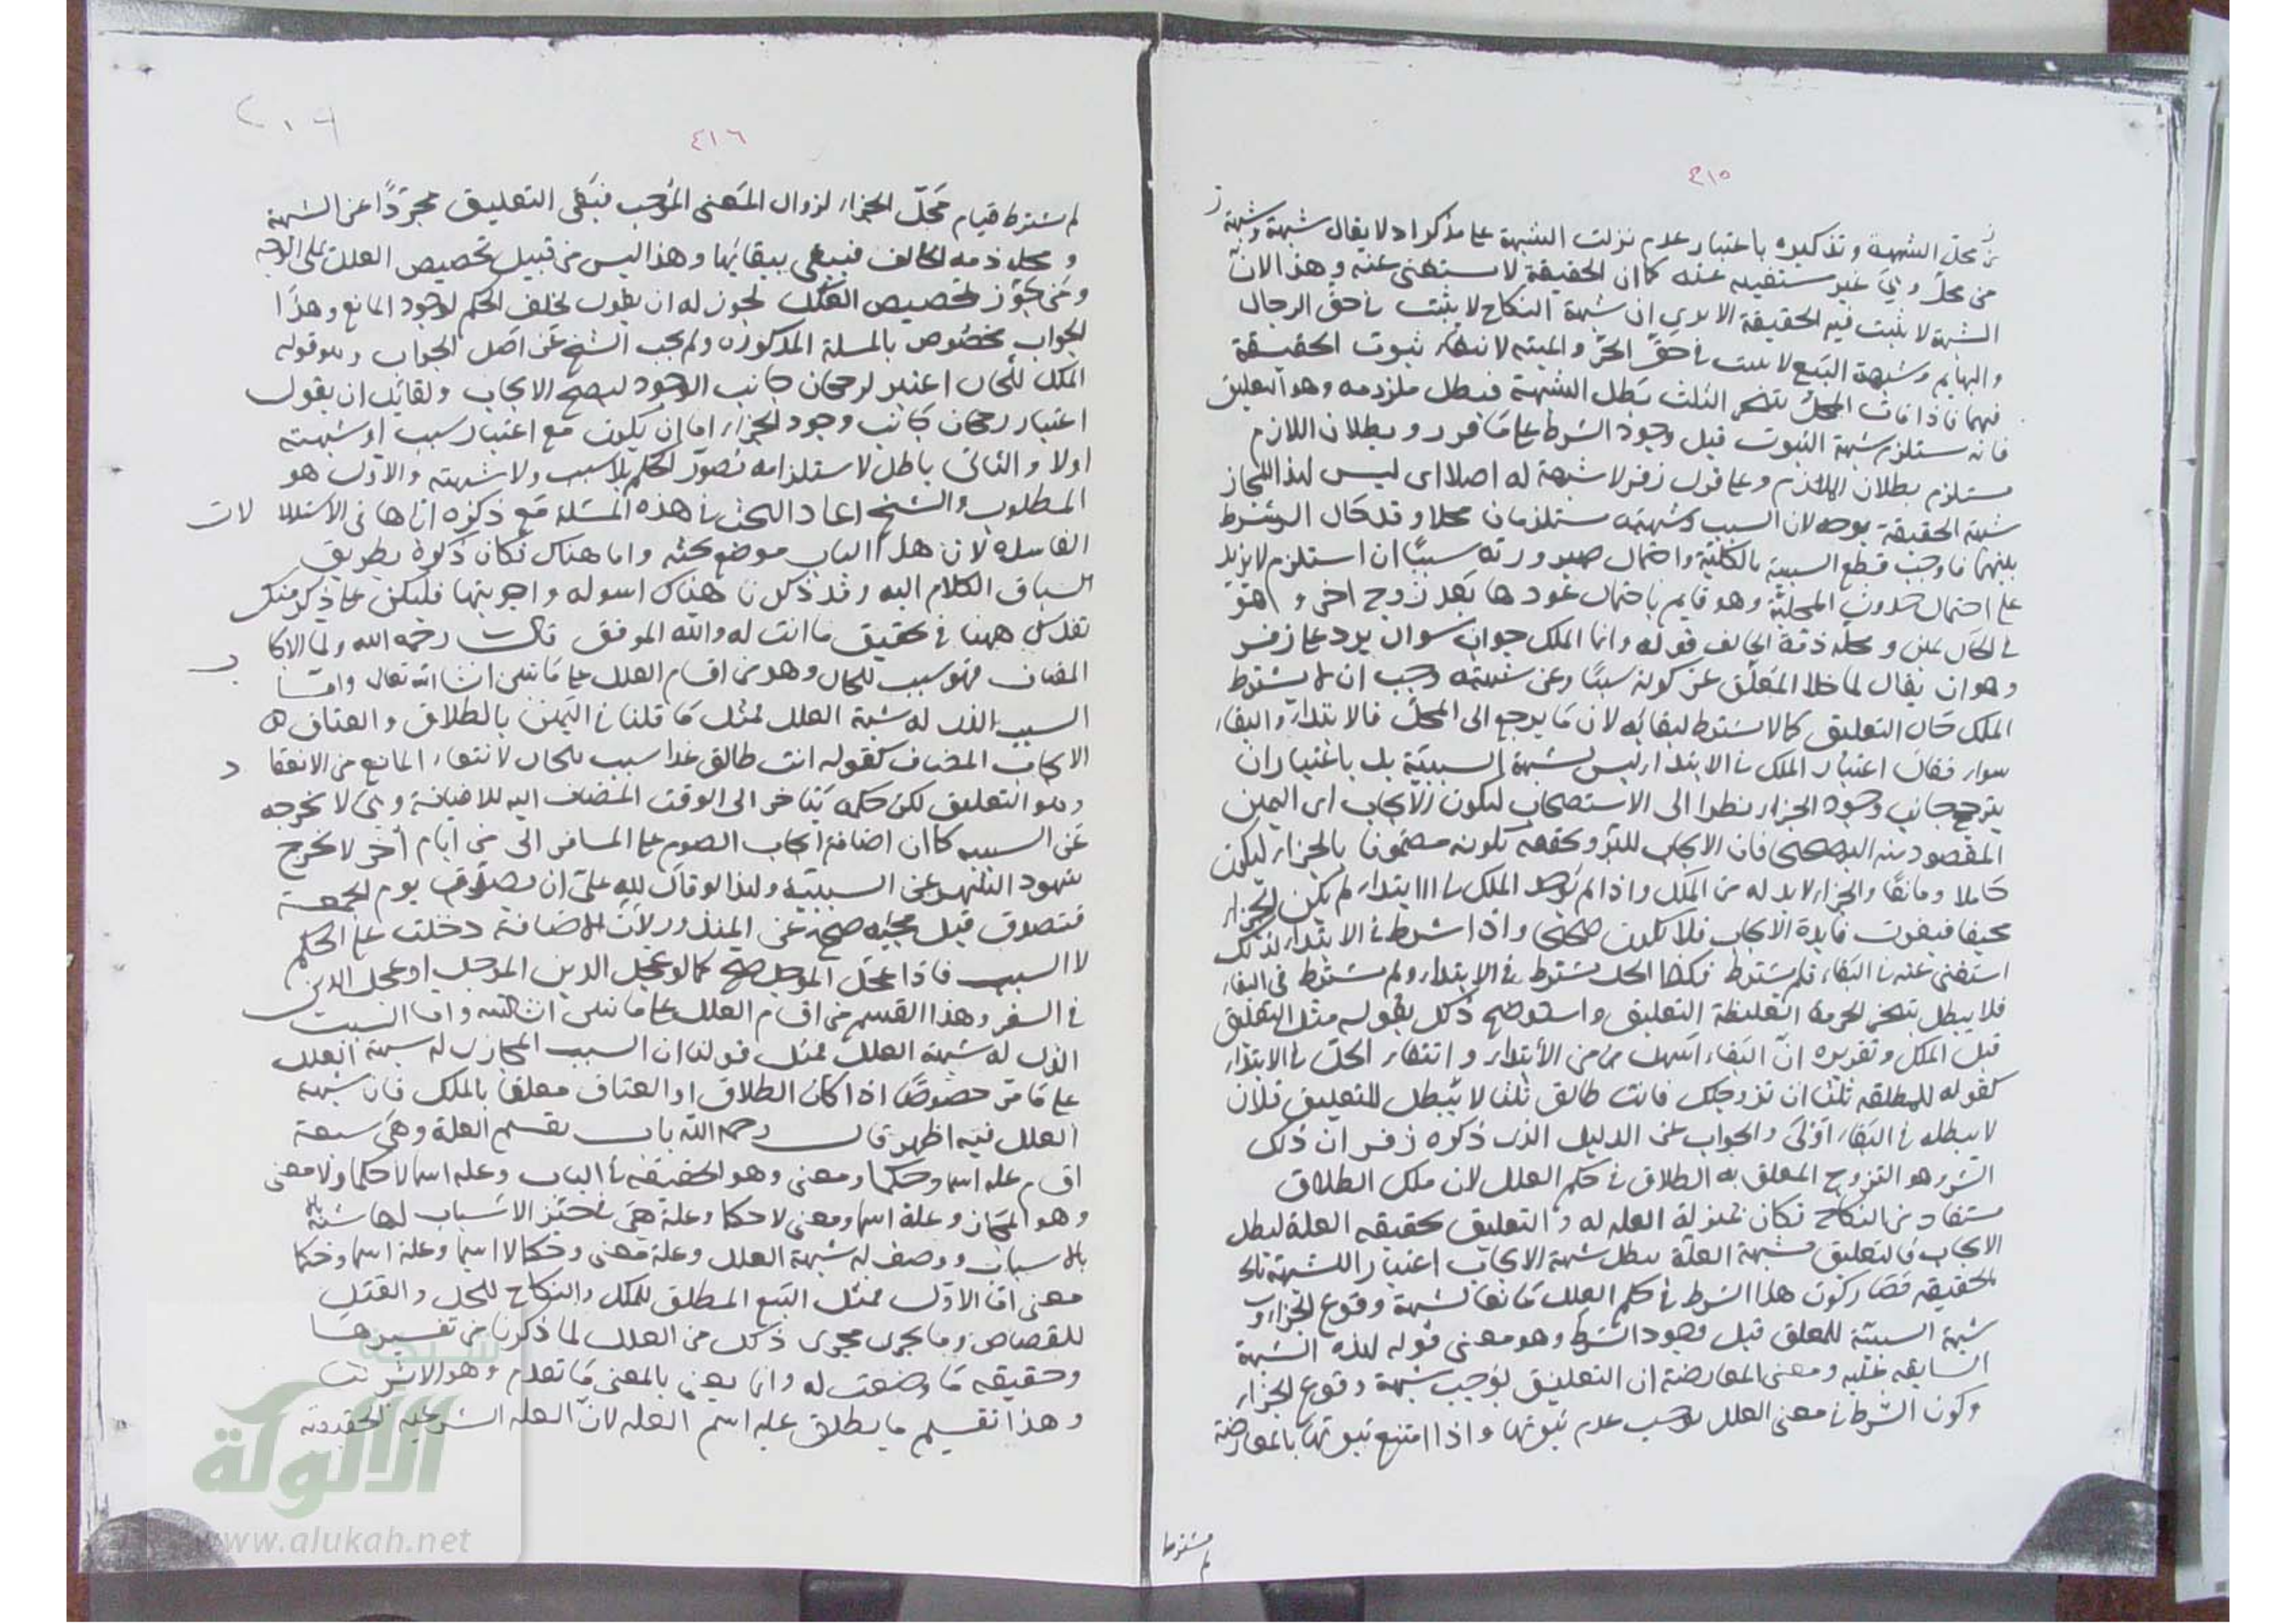 ٤١٥
من محل الشبهة وتذكيره باعتبار عدم نزلت الشبهة على مذكر اد لا يقال شبهة وشبهة
من محل وبقى غير مستغنيه عنه كما ان الحقيقة لا تستغنى عنه وهذا لان
الشبهة لا تثبت فيه الحقيقة الا يرى ان شبهة النكاح لا يثبت في حق الرجال
والبهايم وشبهة البيع لا تثبت في حق الحر والميتة لانتفاء ثبوت الحقيقة
فيهما فاذا فات المحل بتنجيز الثلث بطل الشبهة فبطل ملزومه وهو التعليق
فانه يستلزم شبهة الثبوت قبل وجود الشرط على ما قرر وبطلان اللازم
مستلزم بطلان الملزوم وعلى قول زفر لا شبهة له اصلا اى ليس لهذا المجاز
شبهة الحقيقة بوجه لان السبب وشبهته يستلزمان محلا وقد حال الشرط
بينهما فاوجب قطع السببية بالكلية واحتمال صيرورته سببا ان استلزم لا يزيد
على احتمال حدوث المحلية وهو قايم باحتمال عودها بعد زوج اخر وهو
في الحال يمين ومحله ذمة الحالف قوله وانما الملك جواب سوال يرد على زفر
وهو ان يقال لما خلا المعلق عن كونه سببا وعن شبهته وجب ان لا يشترط
الملك حال التعليق كما لا يشترط لبقائه لان ما يرجع الى المحل فالابتداء والبقاء
سواء فقال اعتبار الملك في الابتداء ليس لشبهة السببية بل باعتبار ان
يترجح جانب وجود الجزاء نظرا الى الاستصحاب ليكون الايجاب اى اليمين
المقصود منه البر صحيحا فان الايجاب للبر وتحققه بكونه مضمونا بالجزاء ليكون
حاملا ومانعا والجزاء لابد له من الملك واذا لم يوجد الملك في الابتداء لم يكن الجزاء
مخيفا فيفوت فايدة الايجاب فلا يكون صحيحا واذا اشرط في الابتداء لذلك
استغنى عنه في البقاء فلم يشترط فكذا الحل يشترط في الابتداء ولم يشترط في البقاء
فلا يبطل بتنجيز الحرمة الغليظة التعليق واستوضح ذلك بقوله مثل التعليق
قبل الملك وتقريره ان البقاء اسهل من الابتداء وانتفاء الحل في الابتداء
كقوله للمطلقة ثلثا ان تزوجتك فانت طالق ثلثا لا يبطل التعليق فلان
لا يبطله في البقاء اولى والجواب عن الدليل الذى ذكره زفر ان ذلك
الشرط وهو التزوج المعلق به الطلاق في حكم العلل لان ملك الطلاق
مستفاد من النكاح فكان بمنزلة العلة له والتعليق بحقيقة العلة يبطل
الايجاب فالتعليق بشبهة العلة يبطل شبهة الايجاب اعتبارا للشبهة بالحقيقة
فصار كون هذا الشرط في حكم العلل مانعا لشبهة وقوع الجزاء و
شبهة السببية للمعلق قبل وجود الشرط وهو معنى قوله لهذه الشبهة
السابقة عليه ومعنى المعارضة ان التعليق يوجب شبهة وقوع الجزاء
وكون الشرط في معنى العلل يوجب عدم ثبوتها واذا امتنع ثبوتها بالمعارضة
٤١٦
٢٠٦
لم يشترط قيام محل الجزاء لزوال المعنى الموجب فبقى التعليق مجردا عن الشبهة
ومحله ذمة الحالف فيبقى ببقائها وهذا ليس من قبيل تخصيص العلل على الوجه
ومن جوز تخصيص العلل يجوز له ان يقول تخلف الحكم لوجود المانع وهذا
الجواب مخصوص بالمسلة المذكورة ولم يجب الشيخ عن اصل الجواب وهو قوله
الملك للحال اعتبر لرجحان جانب الوجود ليصح الايجاب ولقائل ان يقول
اعتبار رجحان جانب وجود الجزاء اما ان يكون مع اعتبار سبب او شبهته
اولا والثانى باطل لاستلزامه تصور الحكم بلا سبب ولا شبهته والاول هو
المطلوب والشيخ اعاد البحث في هذه المسئلة مع ذكره اياها فى الاستدلالات
الفاسدة لان هذا الباب موضع بحثه واما هناك فكان ذكره بطريق
انسياق الكلام اليه وقد ذكرنا هناك اسوله واجوبتها فليكن على ذكر منك
تقدر على ههنا في تحقيق ما انت له والله الموفق قال رحمه الله ولما الايجاب
المضاف فهو سبب للحال وهو من اقسام العلل على ما نبين ان شا الله تعالى واما
السبب الذى له شبهة العلل فمثل ما قلنا في اليمين بالطلاق والعتاق هـ
الايجاب المضاف كقوله انت طالق غدا سبب للحال لانتفاء المانع من الانعقاد
وهو التعليق لكن حكمه يتاخر الى الوقت المضاف اليه للاضافة وهى لا تخرجه
عن السببية كما ان اضافة ايجاب الصوم على المسافر الى من ايام اخر لا يخرج
شهود الشهر عن السببية ولهذا لو قال لله على ان تصدق يوم الجمعة
فتصدق قبل مجيئه صح عن المنذور لان الاضافة دخلت على الحكم
لا السبب فاذا عجل المؤجل صح كما لو عجل الدين المؤجل او عجل
في السفر وهذا القسم من اقسام العلل على ما نبين ان شا الله واما السبب
الذى له شبهة العلل فمثل قولنا ان السبب المجازى له شبهة العلل
على ما مر خصوصا اذا كان الطلاق او العتاق معلقا بالملك فان شبهة
العلل فيه اظهر قال رحمه الله باب تقسيم العلة وهى سبعة
اقسام علة اسما وحكما ومعنى وهو الحقيقة في الباب وعلة اسما لا حكما ولا معنى
وهو المجاز وعلة اسما ومعنى لا حكما وعلة هى في حيز الاسباب لها شبه
بالاسباب ووصف له شبهة العلل وعلة معنى وحكما لا اسما وعلة اسما وحكما
معنى اما الاول فمثل البيع المطلق للملك والنكاح للحل والقتل
للقصاص وما يجرى مجرى ذلك من العلل لما ذكرنا من تفسيرها
وحقيقة ما وضعت له وانما يعنى بالمعنى ما تقدم وهو الاثر
وهذا تقسيم ما يطلق عليه اسم العلة لان العلة الشرعية الحقيقية
شبكة
الألوكة
www.alukah.net